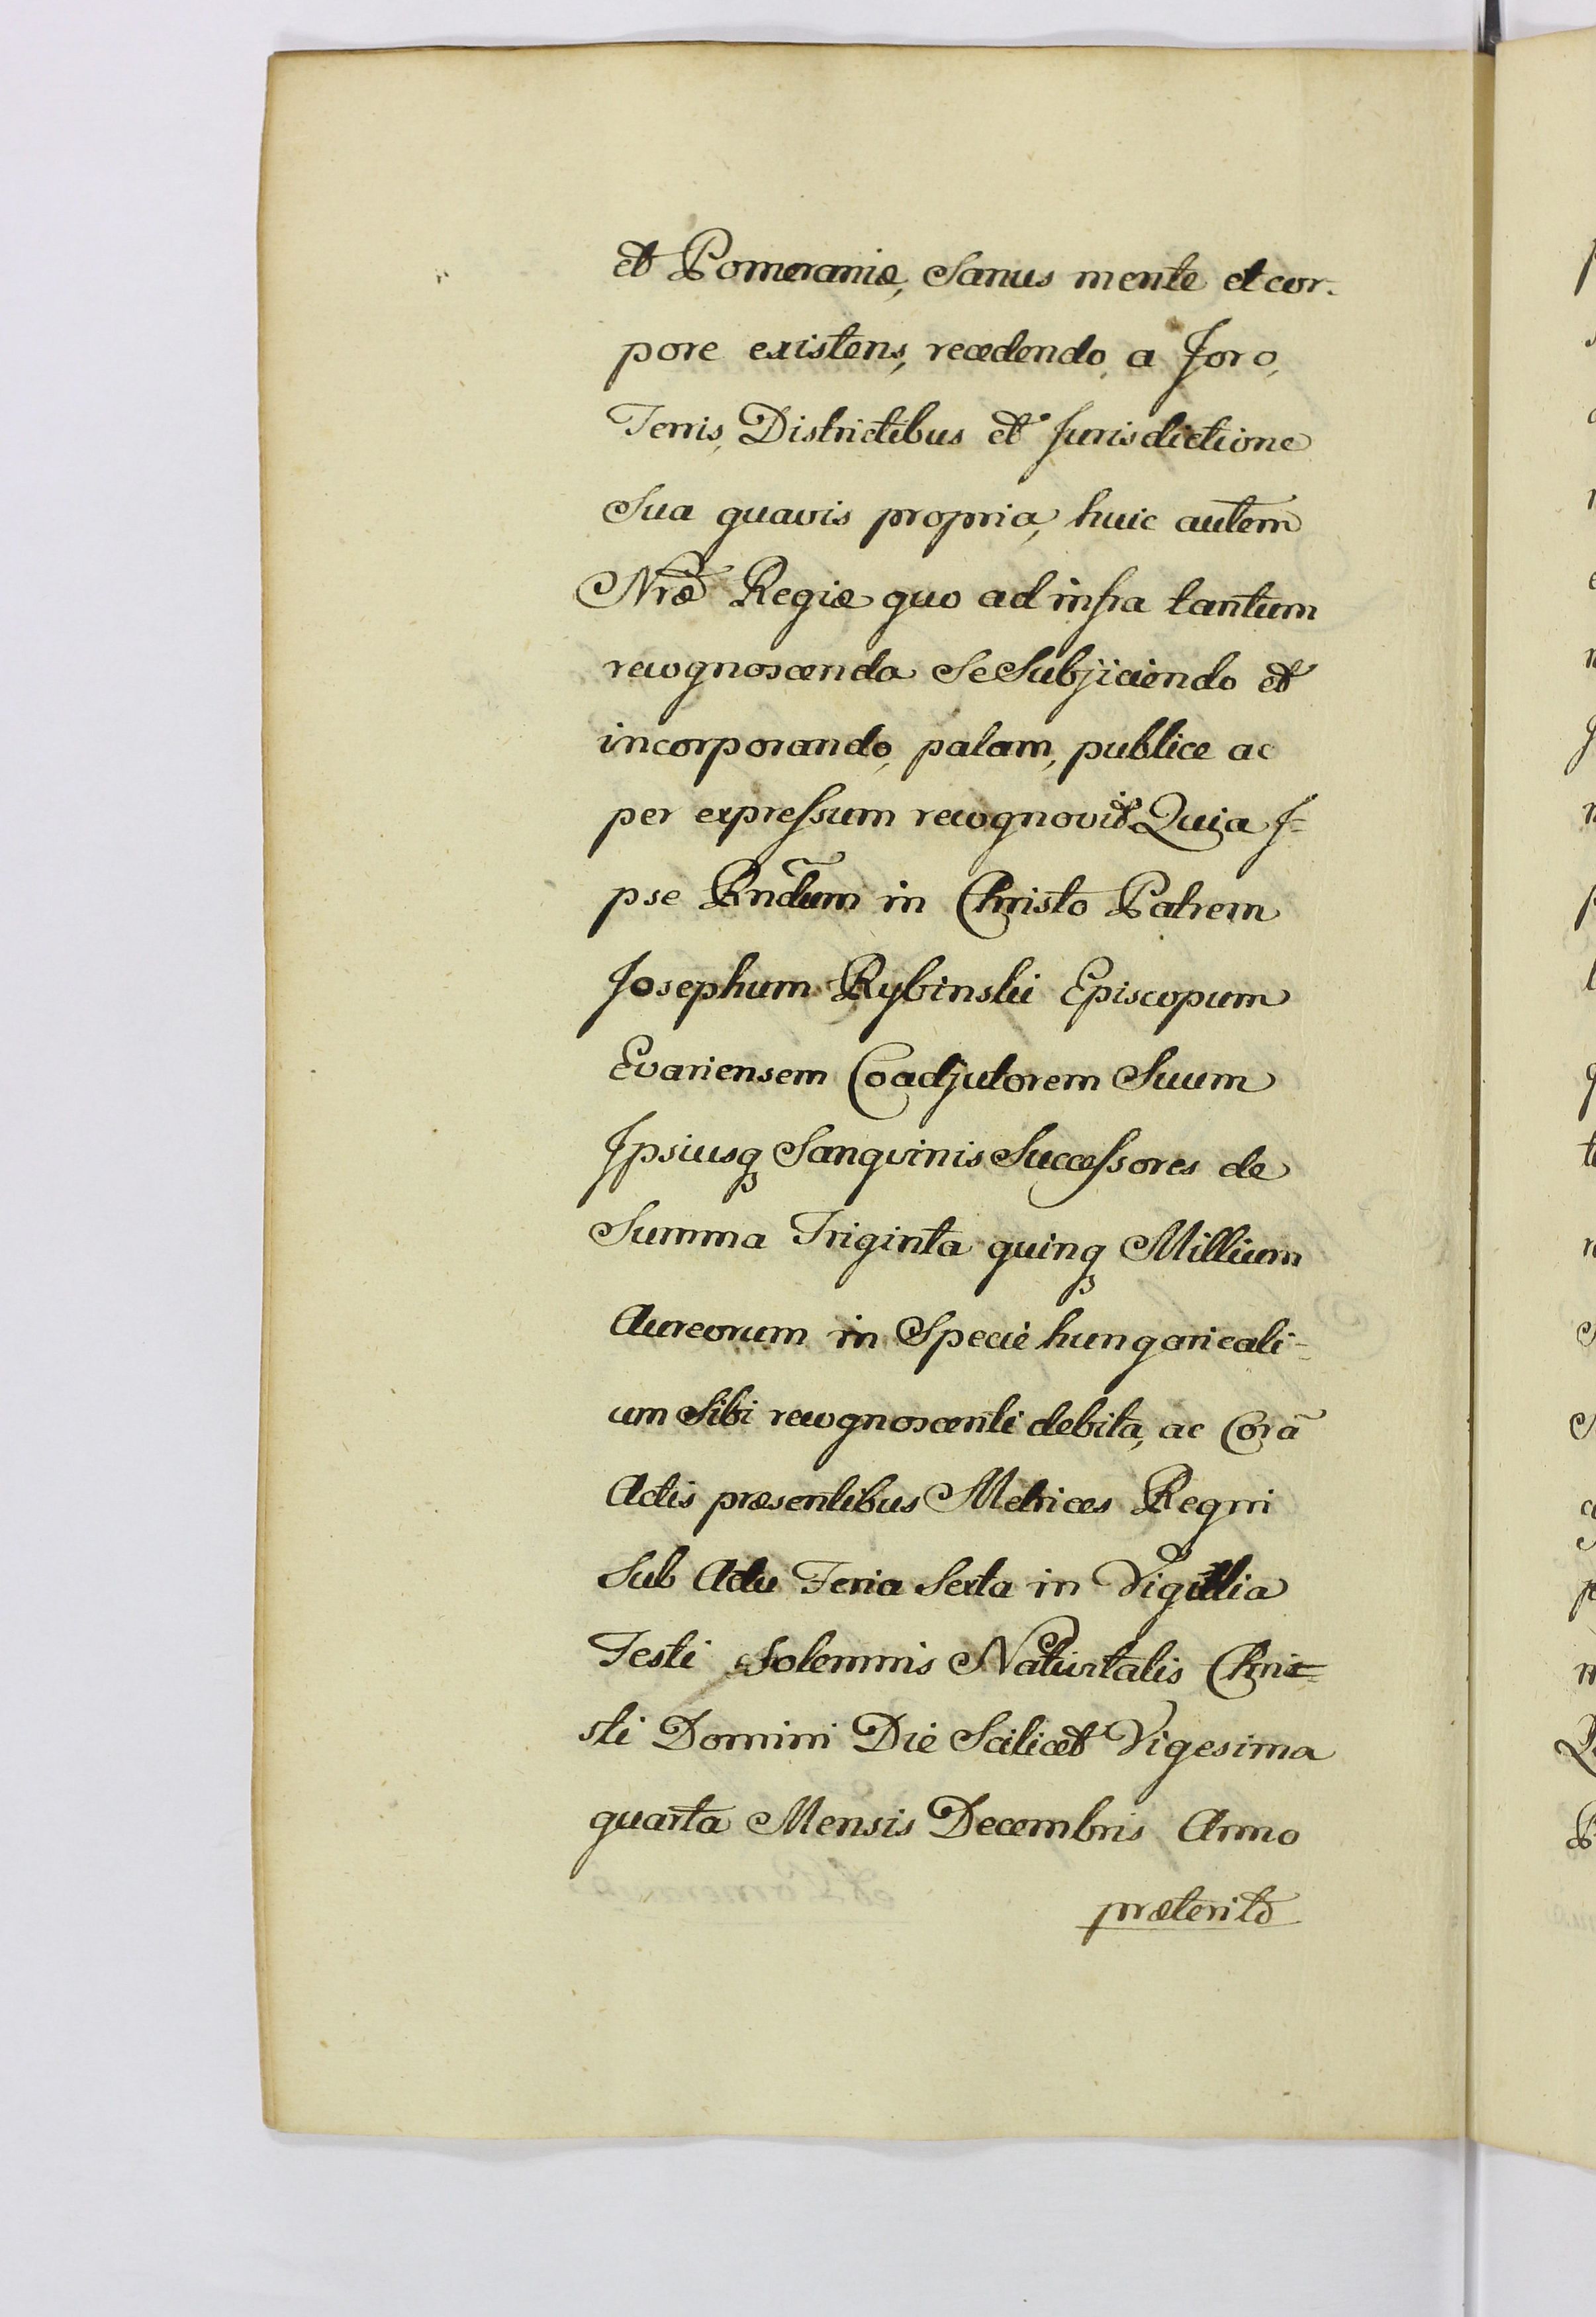 et Pomeraniæ, Sanus mente et cor-
pore existens, recedendo, a Foro,
Terris, Districtibus et Jurisdictione
Sua quavis propria, huic autem
Nræ Regiæ quo ad infra tantum
recognoscenda Se Subjiciendo et
incorporando, palam, publice ac
per expreſsum recognovit Quia J-
pse Rndum in Christo Patrem
Josephum Rybinski Episcopum
Evariensem Coadjutorem Suum
Jpsiusq Sangvinis Succeſsores de
Summa Triginta quinq Millium
Aureorum in Specie hungaricali-
um Sibi recognoscenti debita, ac Corã
Actis præsentibus Metrices Regni
Sub Actu Feria Sexta in Vigillia
Festi Solemnis Nativitatis Chri-
sti Domini Die Scilicet Vigesima
quarta Mensis Decembris Anno
præterito